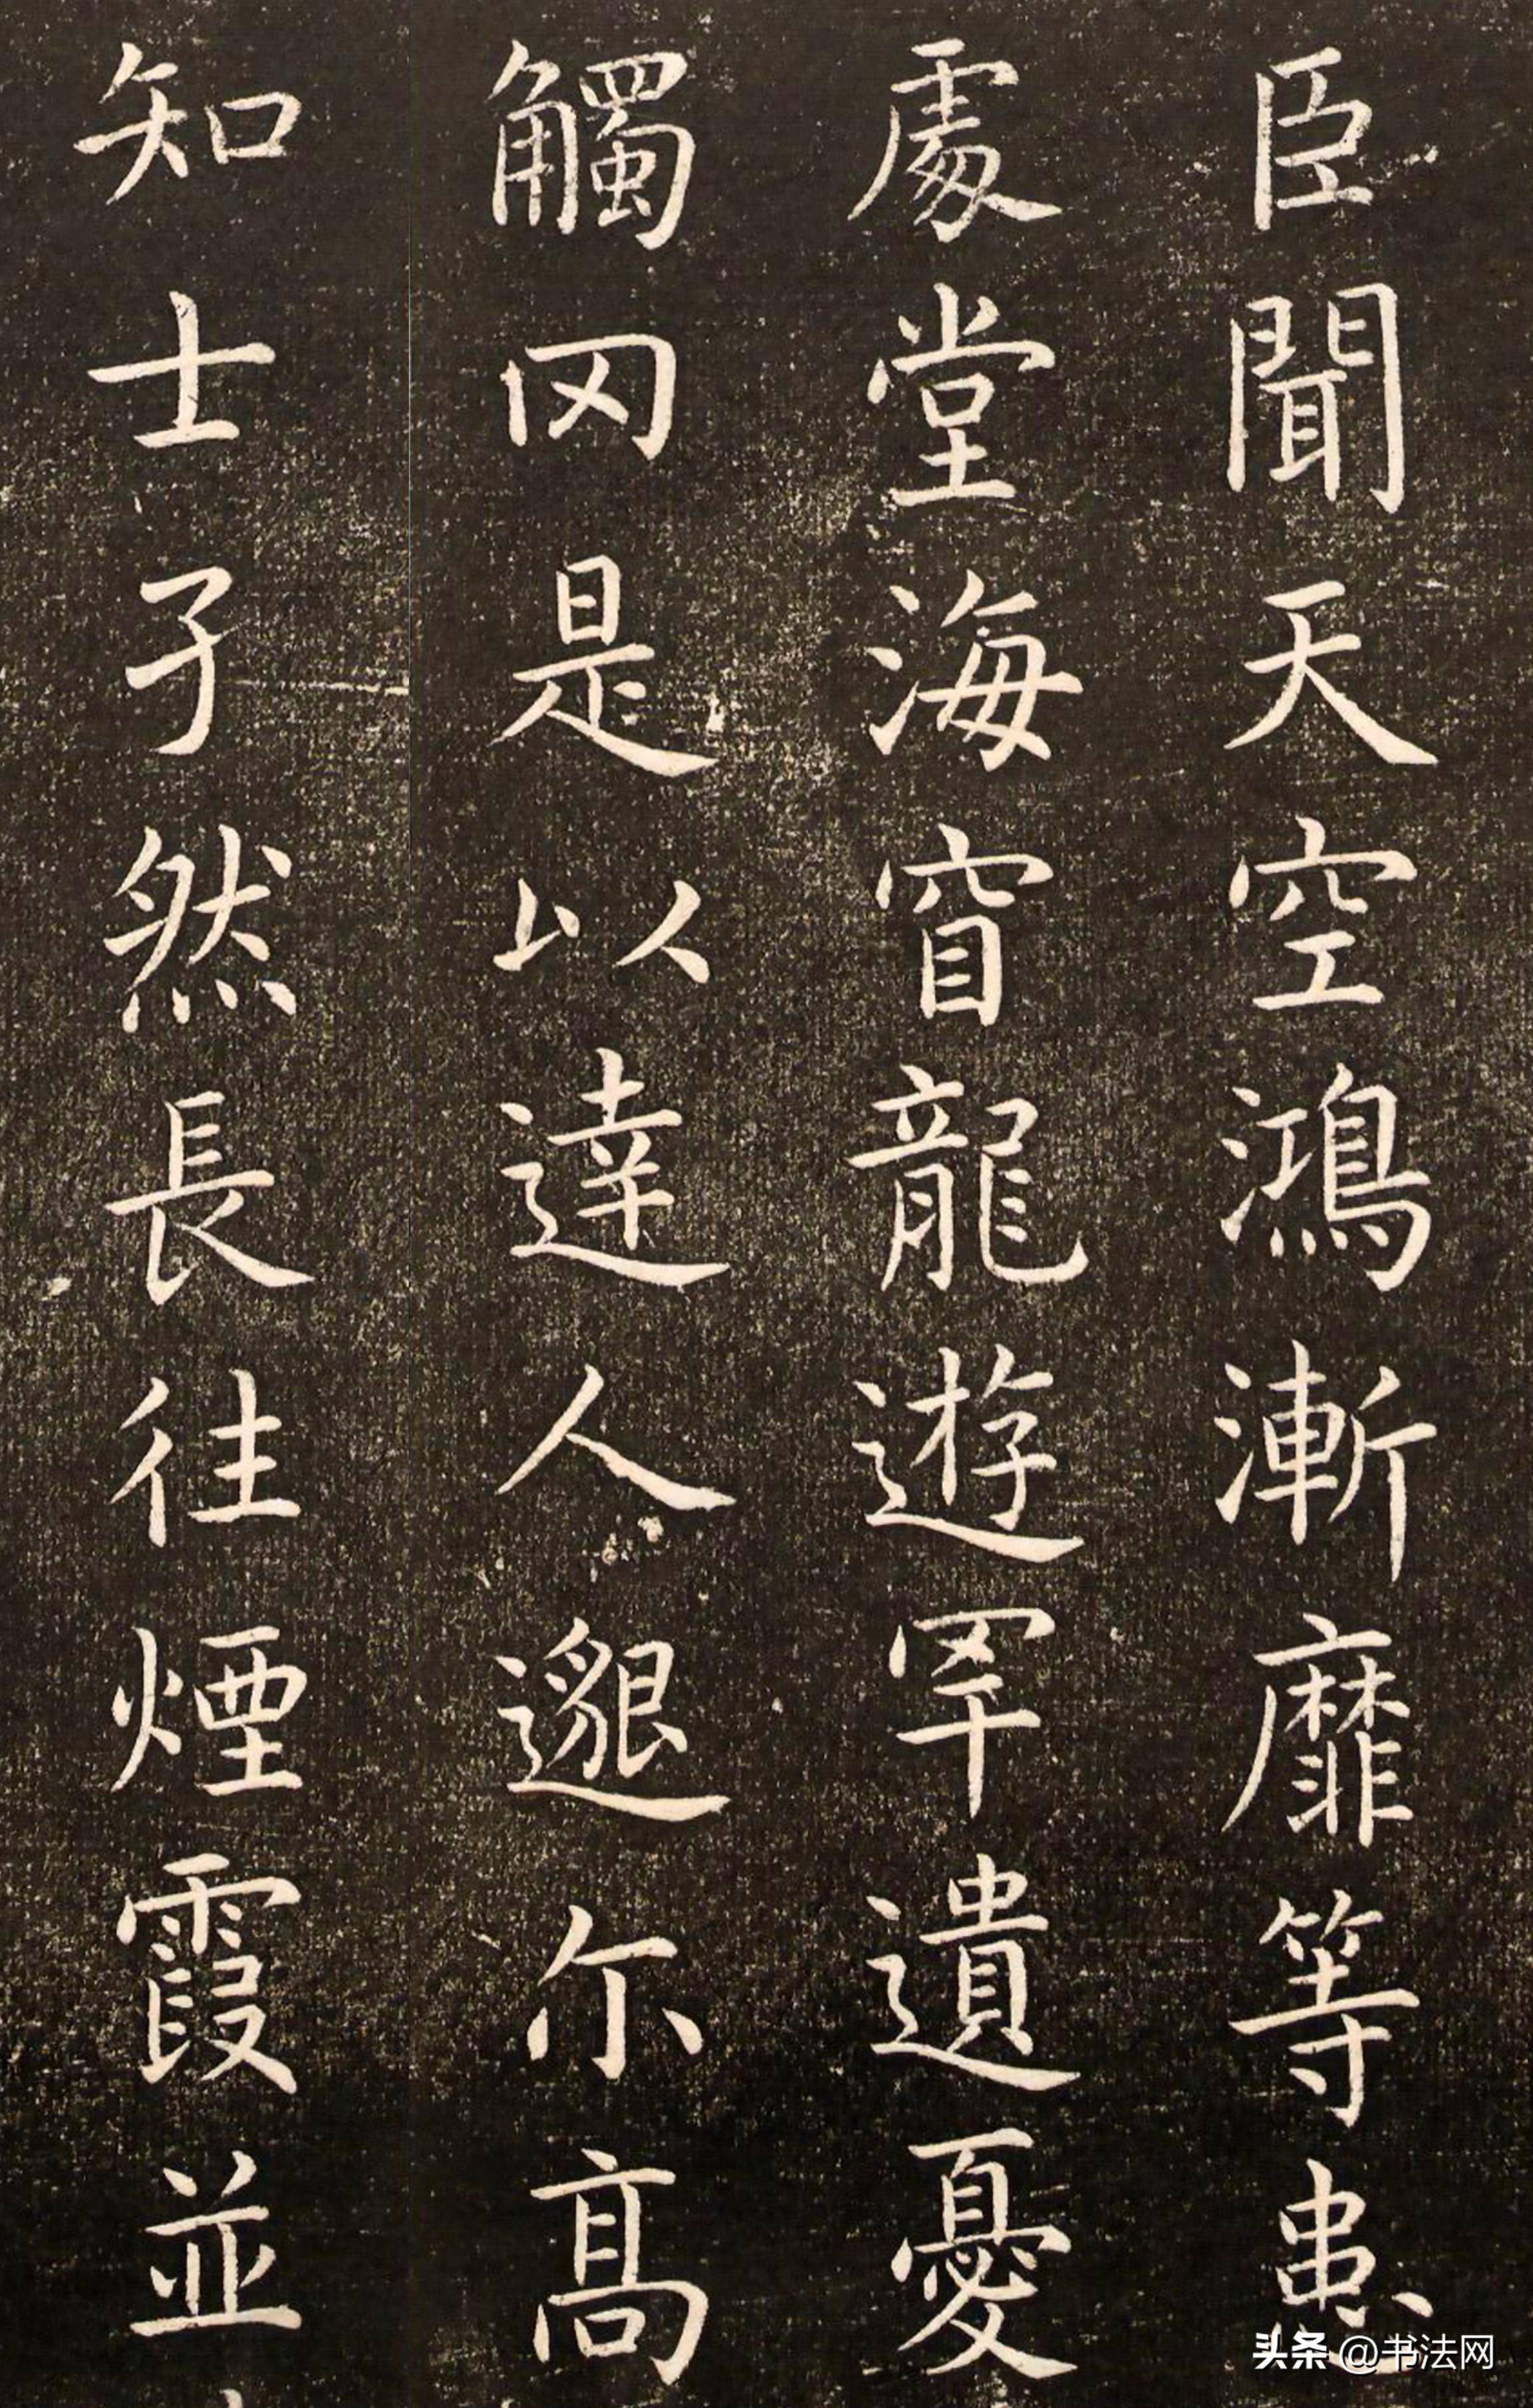 臣聞天空鴻漸靡等患
處堂海窅龍遊罕遺憂
觸罔是以達人邈尔高
知士孑然長往煙霞並
头条 @书法网